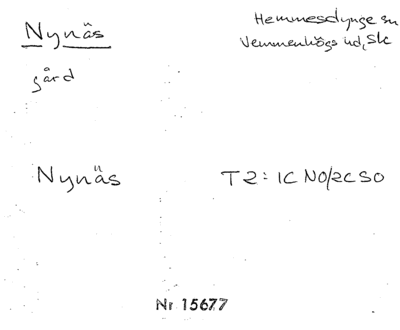 Nynäs
Hemmesdynge sn
Vemmenhögs hd, Sk
gård
Nynäs
T2: 1C NO/2C SO
Nr 15677